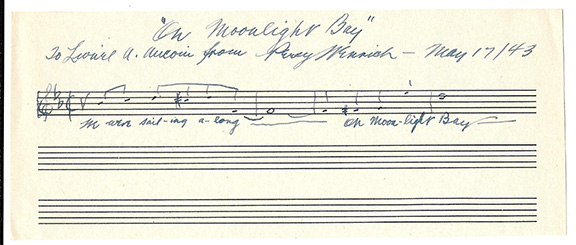 "On Moonlight Bay"
To A. Aucoin from Percy Wenrich – May 17/43
We were sail-ing a-long On Moon-light Bay